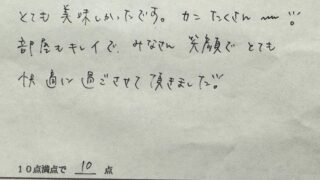 とても 美味しかったです。カニ たくさん 〰!
部屋もキレイで、みなさん 笑顔で とても
快適に過ごさせて頂きました!
10点満点で 10 点